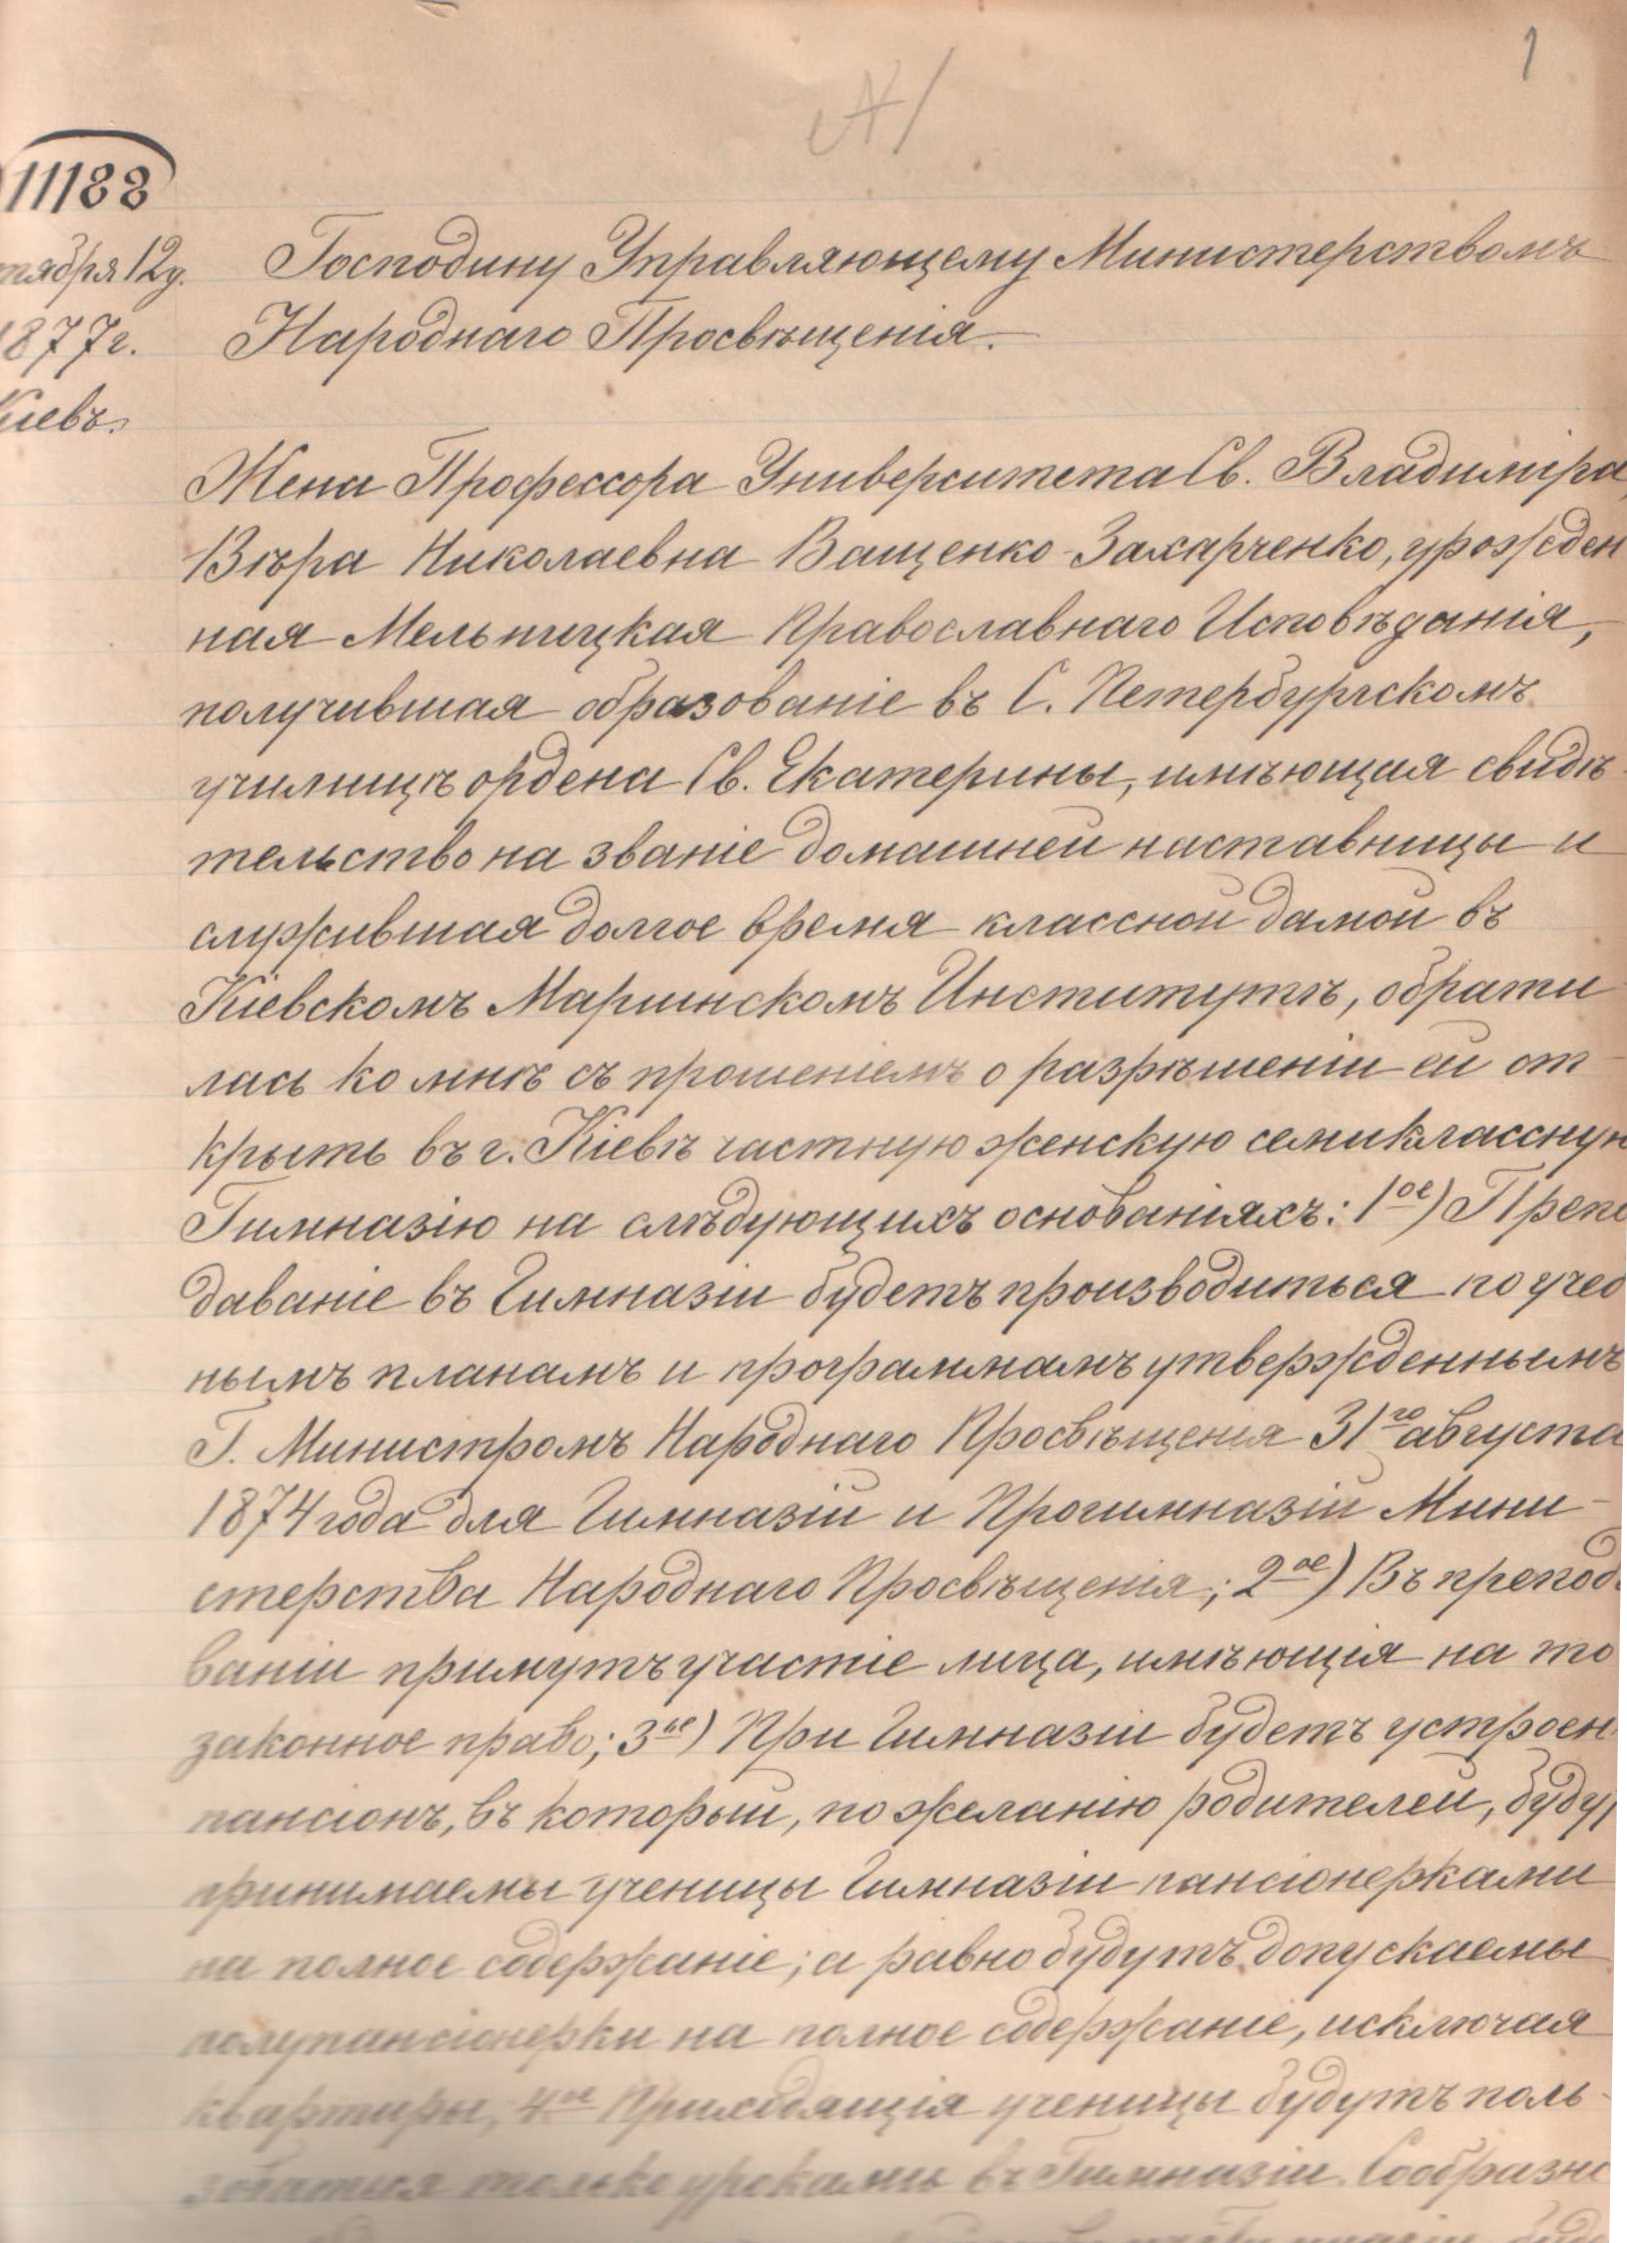 1
№ 1
11188
тября 12 д.
1877 г.
Киевъ.
Господину Управляющему Министерствомъ
Народнаго Просвѣщенія.
Жена Профессора Университета Св. Владиміра,
Вѣра Николаевна Ващенко-Захарченко, урожден
ная Мельницкая Православнаго Исповѣданія,
получившая образованіе въ С. Петербургскомъ
училищѣ ордена Св. Екатерины, имѣющая свидѣ-
тельство на званіе домашней наставницы и
служившая долгое время классной дамой въ
Кіевскомъ Маріинскомъ Институтѣ, обрати
лась ко мнѣ съ прошеніемъ о разрѣшеніи ей от-
крыть въ г. Кіевѣ частную женскую семиклассную
Гимназію на слѣдующихъ основаніяхъ: 1ое) Препо
даваніе въ Гимназіи будетъ производиться по учеб
нымъ планамъ и программамъ утвержденнымъ
Г. Министромъ Народнаго Просвѣщенія 31го августа
1874 года для Гимназій и Прогимназій Мини-
стерства Народнаго Просвѣщенія; 2ое) Въ препода
ваніи примутъ участіе лица, имѣющія на то
законное право; 3ье) При Гимназіи будетъ устроен
пансіонъ, въ который, по желанію родителей, буду
принимаемы ученицы Гимназіи пансіонерками
на полное содержаніе; а равно будутъ допускаемы
полупансіонерки на полное содержаніе, исключая
квартиры, 4ое Приходящія ученицы будутъ поль-
зоваться только уроками въ Гимназіи. Сообразно